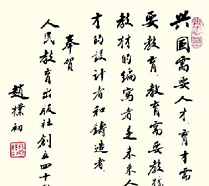 兴国需要人才育才需
要教育教育需要教材
教材的编写者是未来人
才的设计者和铸造者
奉贺
人民教育出版社创立四十
赵朴初